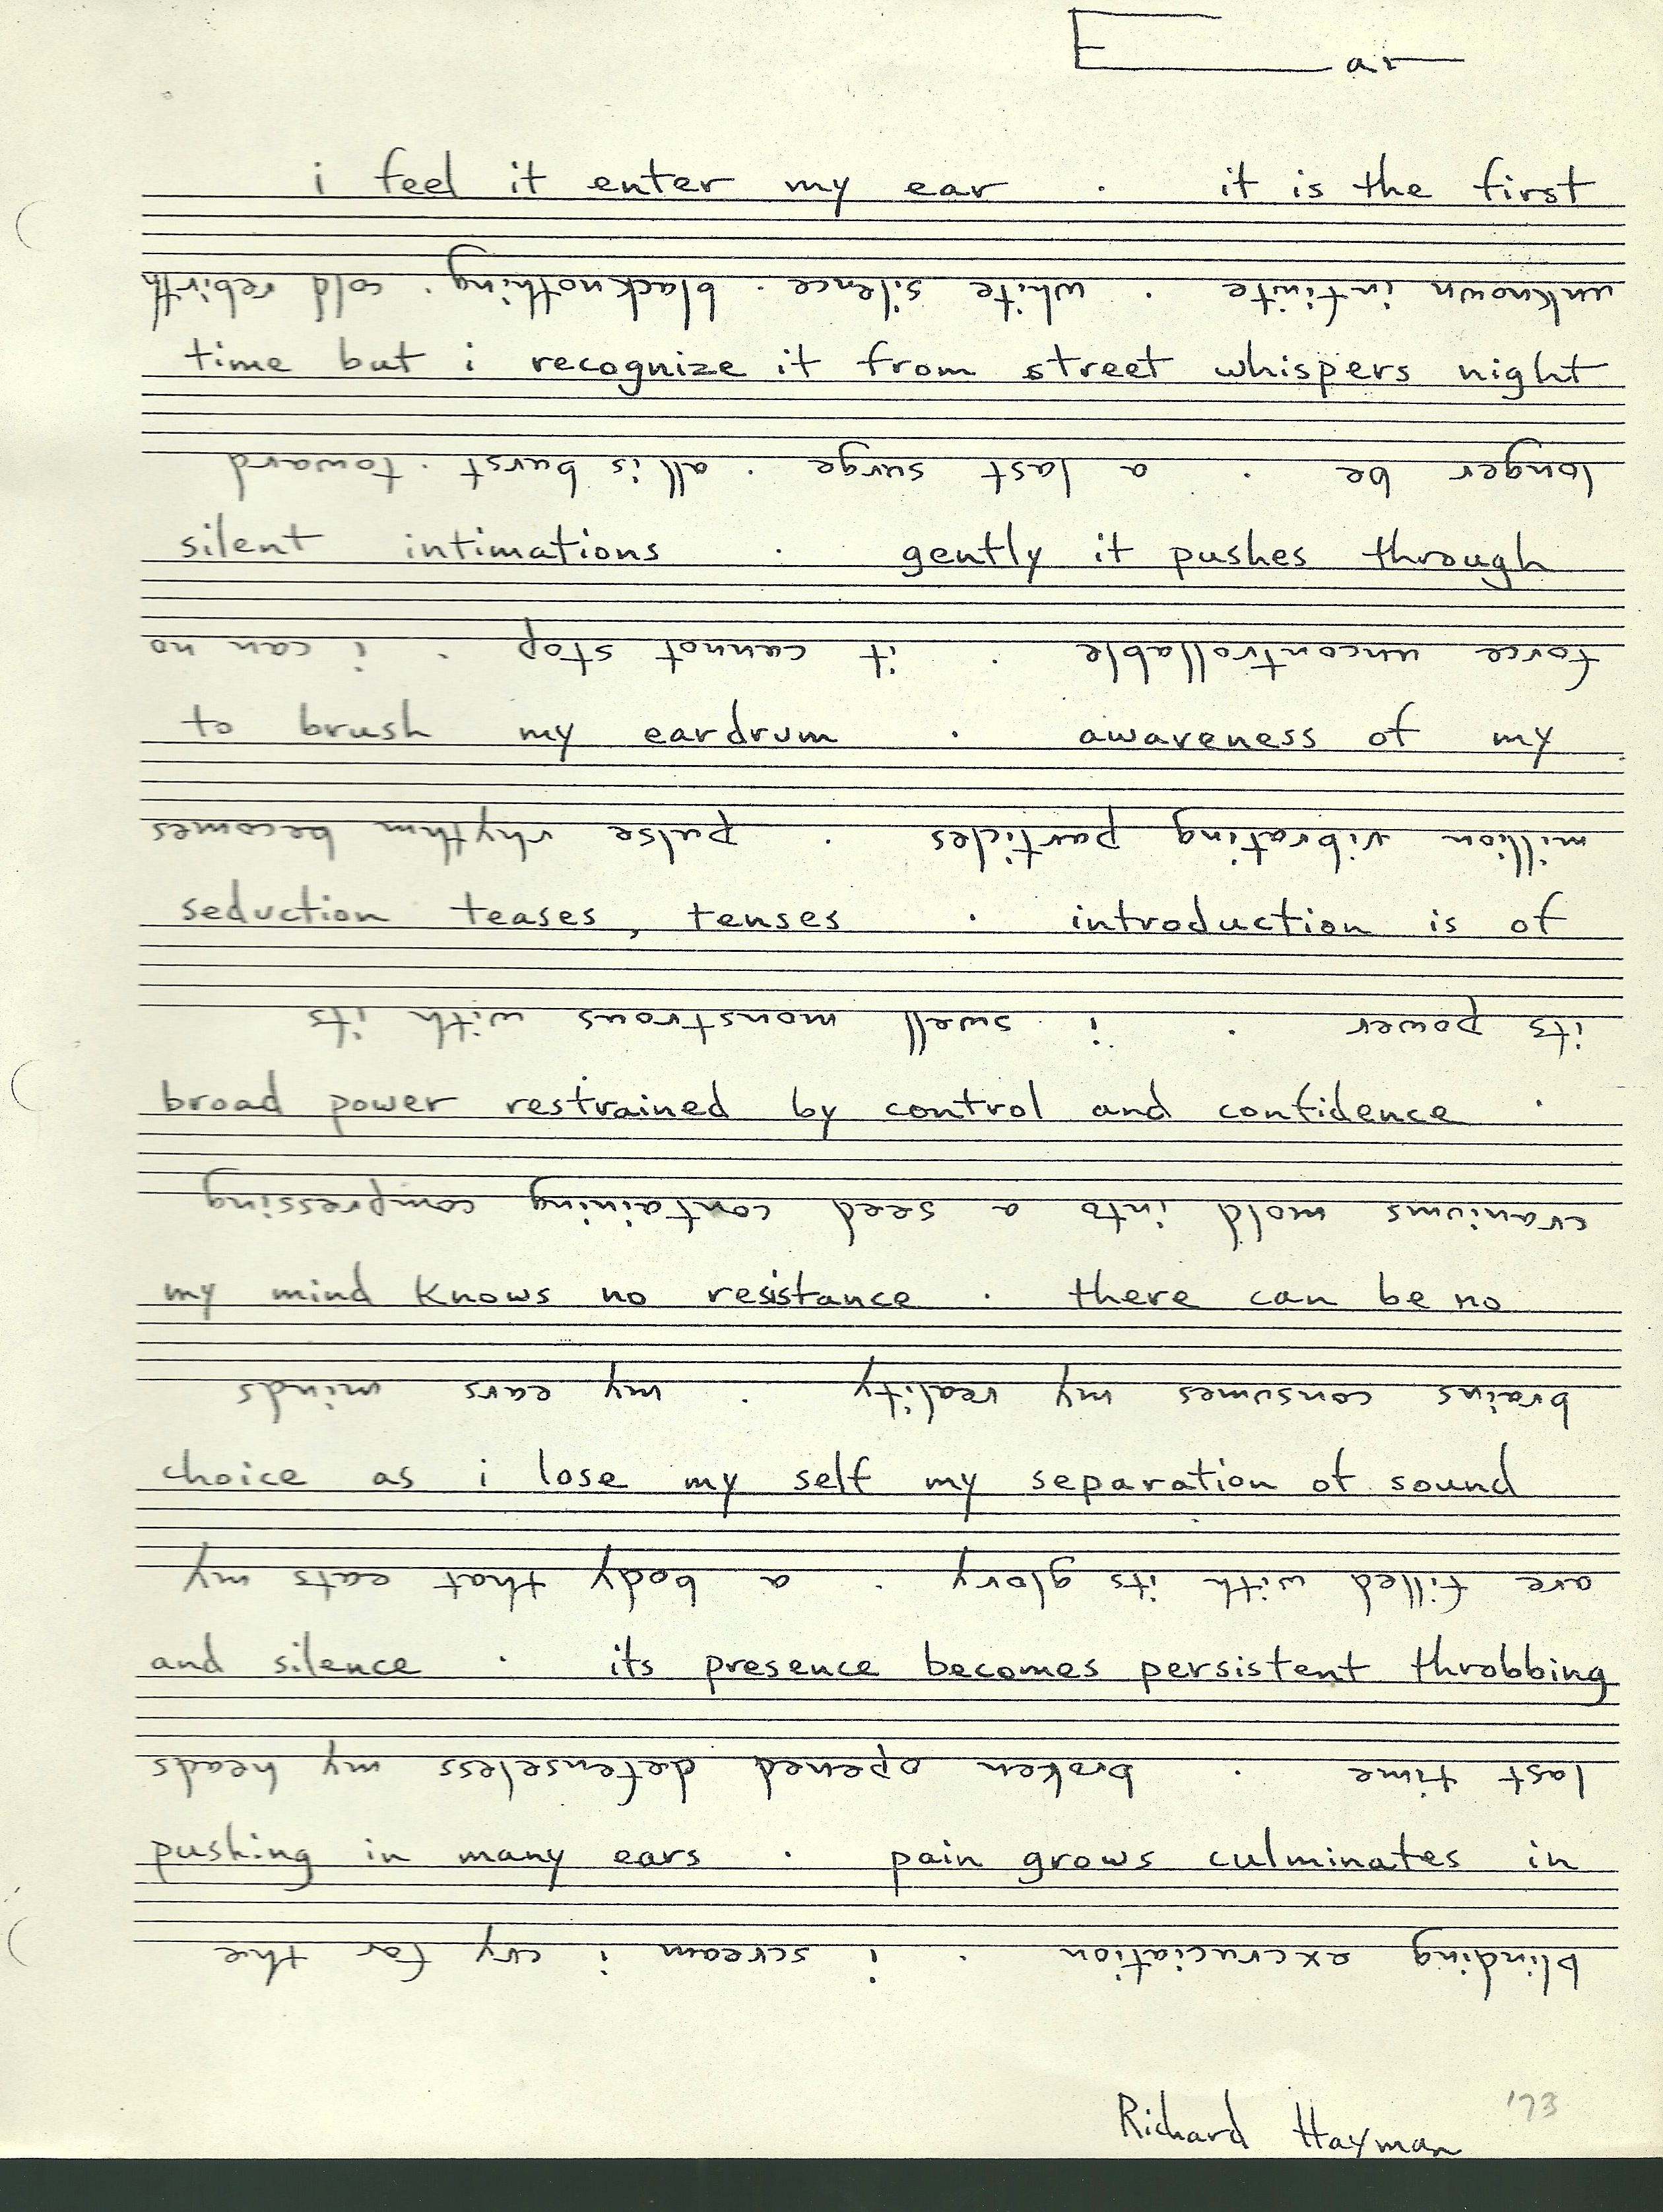 Ear
i feel it enter my ear . it is the first
time but i recognize it from street whispers night
silent intimations . gently it pushes through
to brush my eardrum . awareness of my
seduction teases, tenses . introduction is of
broad power restrained by control and confidence .
my mind knows no resistance . there can be no
choice as i lose my self my separation of sound
and silence . its presence becomes persistent throbbing
pushing in many ears . pain grows culminates in
blinding excruciation . i scream i cry for the
last time . broken opened defenseless my heads
are filled with its glory . a body that eats my
brains consumes my reality . my ears minds
craniums mold into a seed containing compressing
its power . i swell monstrous with its
million vibrating particles . pulse rhythm becomes
force uncontrollable . it cannot stop . i can no
longer be . a last surge . all is burst . toward
unknown infinite . white silence . blacknothing . cold rebirth
Richard Hayman '73